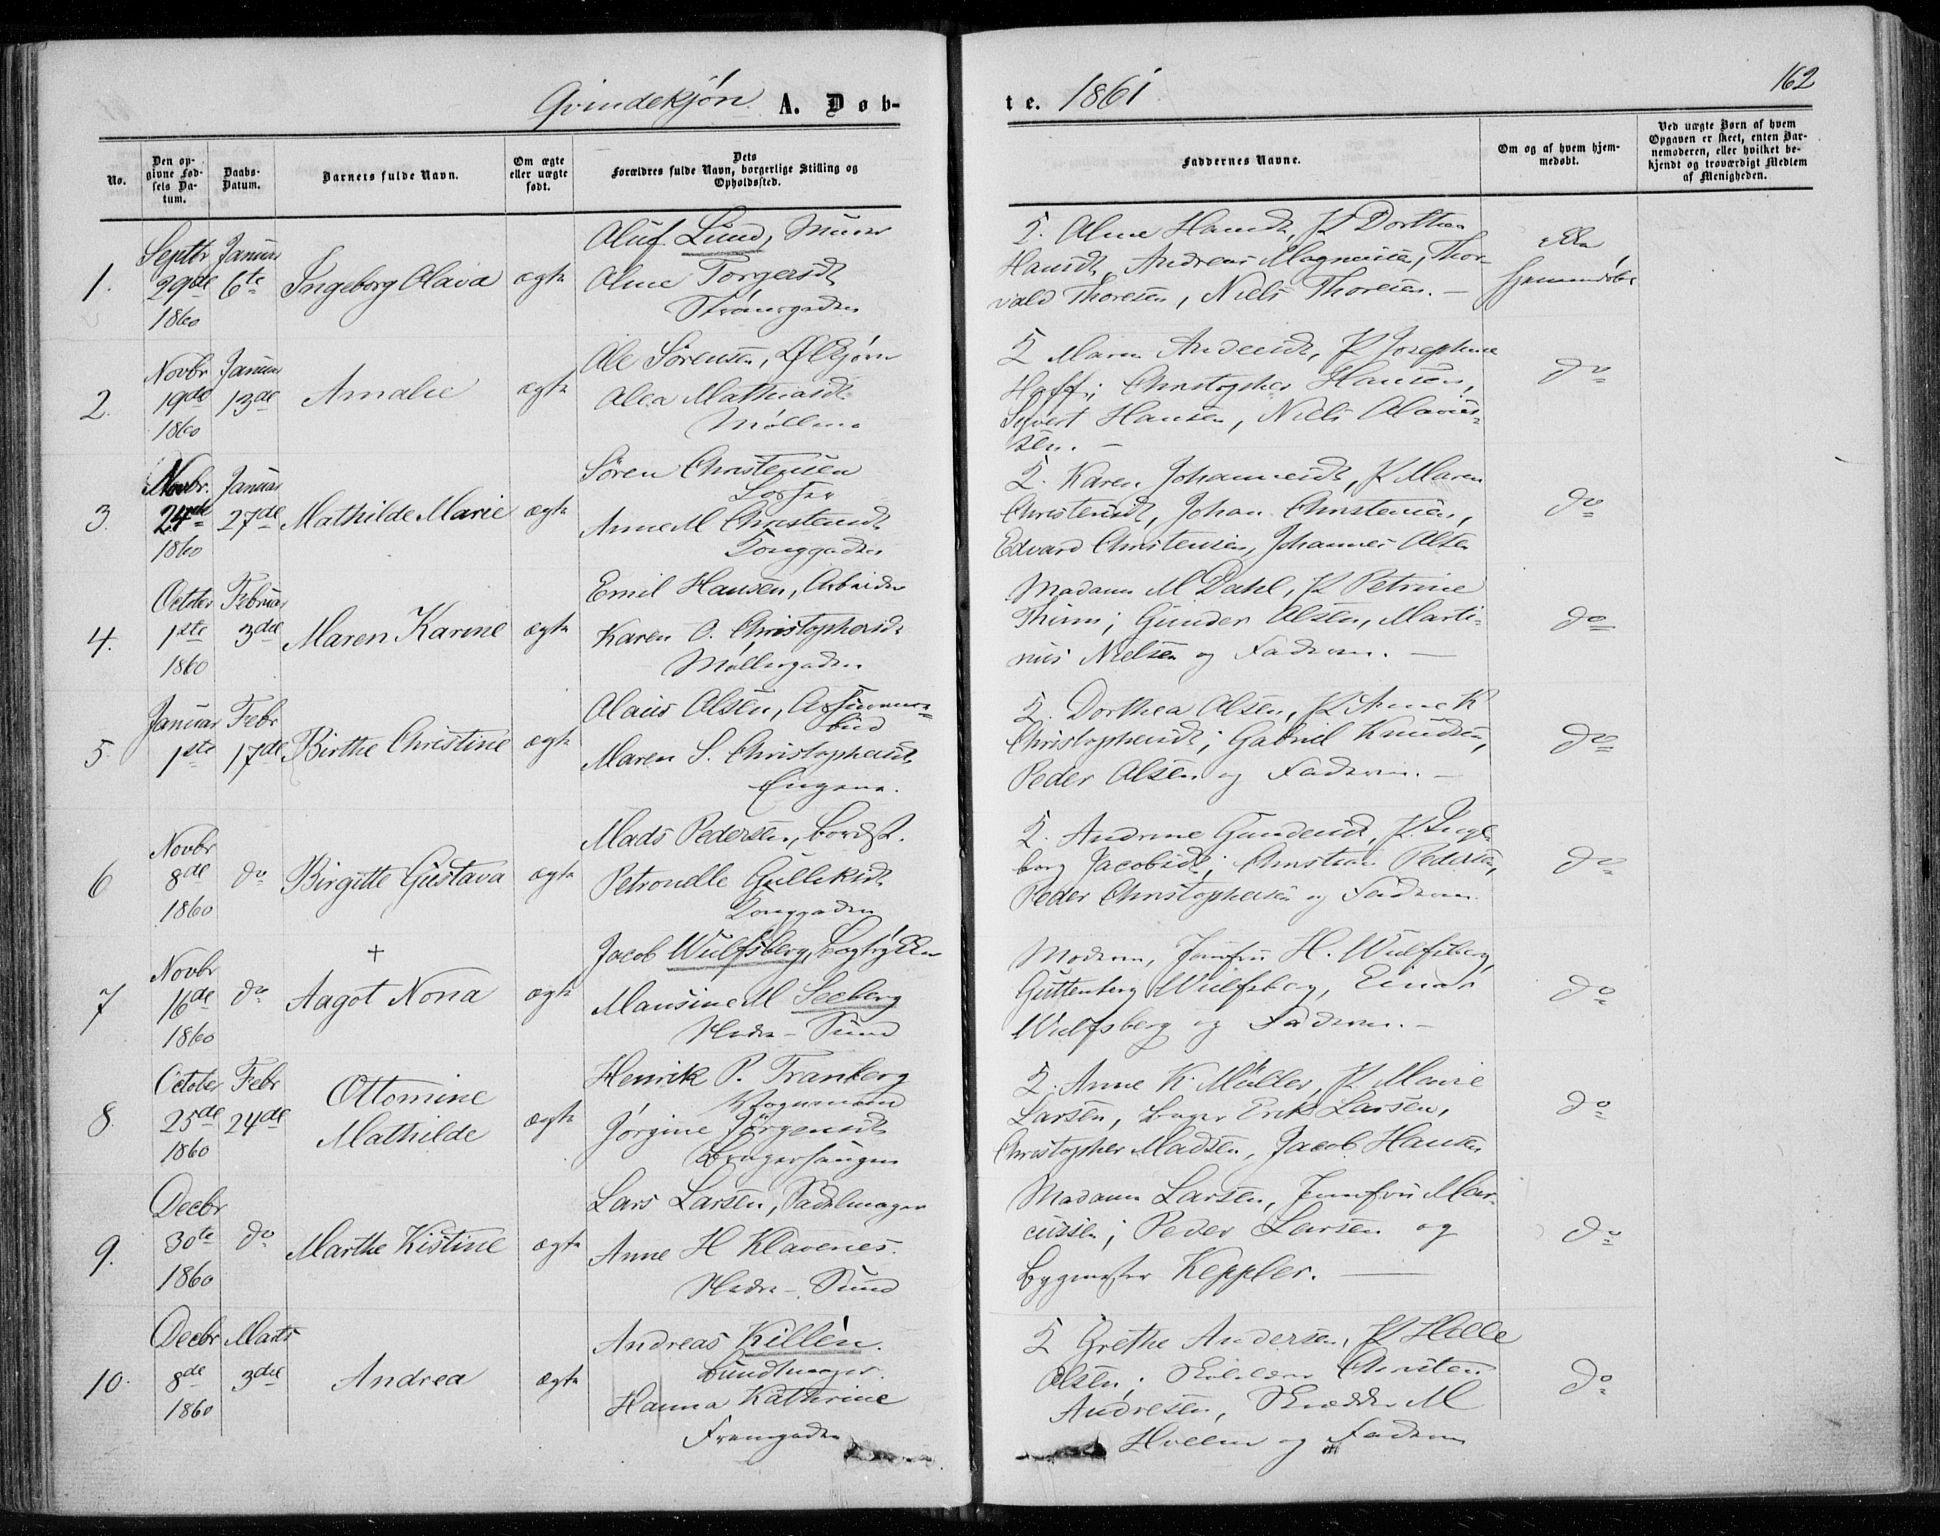 Qvindekjøn A. Døb-
No.
Den op-
givne Fød-
sels Da-
tum.
Daabs-
Datum.
Barnets fulde Navn.
Om ægte
eller uægte
født.
Dets
Forældres fulde Navn, borgerlige Stilling og
Opholdssted.
1.
Septbr
29de
1860
Januar
6te
Ingeborg Olava
ægte
Oluf Lund, Murer
Oline Torgersdt
Strømsgaden
2.
Novbr
19de
1860
Januar
13de
Amalie
ægte
Ole Sørensen,
Olea Mathiasdt
Møllen
3.
Novbr.
24de
1860
Januar
27de
Mathilde Marie
ægte
Søren Christensen
Anne M Christensdt
Langgaden
4.
October
1ste
1860
Februar
3die
Maren Karine
ægte
Emil Hansen, Arbeider
Karen O. Christophersdt
Møllergaden
5.
Januar
1ste
Febr
17de
Birthe Christine
ægte
Olaus Olsen,
bud
Maren S. Christophersdt
Engene.
6
Novbr
8de
1860
do
Birgitte Gustava
ægte
Mads Pedersen,
Petronelle Gulliksdt
Langgaden
7
Novbr
16de
1860
do
+
Aagot Nona
ægte
Jacob Wulfsberg, Bogtrykker
Mansine M Seeberg
Nedre-Sund
8.
October
25de
1860
Febr
24de
Ottomine
Mathilde
ægte
Henrik P. Tranberg
Vognmand
Jørgine Jørgensdt
Bragerhaugen
9.
Decbr
30te
1860
do
Marthe Kistine
ægte
Lars Larsen, Sadelmager
Anne H Klavenes.
Nedre-Sund
10.
Decbr
8de
1860
Marts
3die
Andrea
ægte
Andreas Killén.
Bundtmager.
Hanna Kathrine
Fremgaden
te. 1861
162
Faddernes Navne.
Om og af hvem hjem-
medøbt.
Ved uægte Børn af hvem
Opgaven er skeet, enten Bar-
nemoderen, eller hvilket be-
kjendt og troværdigt Medlem
af Menigheden.
Q. Oline Hansdt, P Dorthea
Hansdt, Andreas Magnusen, Thor-
vald Thoresen, Niels Thoresen. —
ikke
hjemmedøbt
Q Maren Andersdt, P Josephine
Hoff; Christopher Hansen,
Syvert Hansen, Niels Olaves-
sen. —
do
Q. Karen Johannesdt, P Maren
Christensdt, Johan Christensen,
Edvard Christensen, Johannes Olsen
do
Madame M Dahl, P Petrine
Thim; Gunder Olsen, Marti-
nus Nielsen og Faderen. —
do
Q. Dorthea Olsen, P Anne K
Christophersdt; Gabriel Knudsen,
Peder Olsen og Faderen. —
do
Q. Andrine Gundersdt, P. Inge-
borg Jacobsdt; Christian Pedersen,
Peder Christophersen og Faderen.
do
Moderen, Jomfru H. Wulfsberg,
Guttenberg Wulfsberg, Einar
Wulfsberg og Faderen. —
do
Q. Anne K. Müller, P. Marie
Larsen, Bager Erik Larsen,
Christopher Madsen, Jacob Hansen
do
Madame Larsen, Jomfru Mar-
cussen; Peder Larsen og
Bygmester Keppler. —
do
Q Grethe Andersen, P Helle
Olsen; Christen
Andresen, Skrædder M
Hollen og Faderen
do